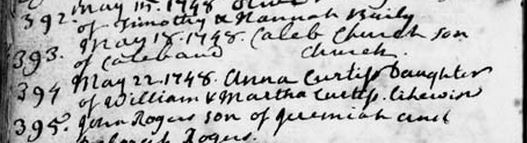 392. May 15. 1748.
of Timothy & Hannah Baily
393. May 18. 1748. Caleb Church son
of Caleb and Church.
394 May 22. 1748. Anna Curtiss Daughter
of William & Martha Curtiss. likewise
395. John Rogers son of Jeremiah and
Rogers.